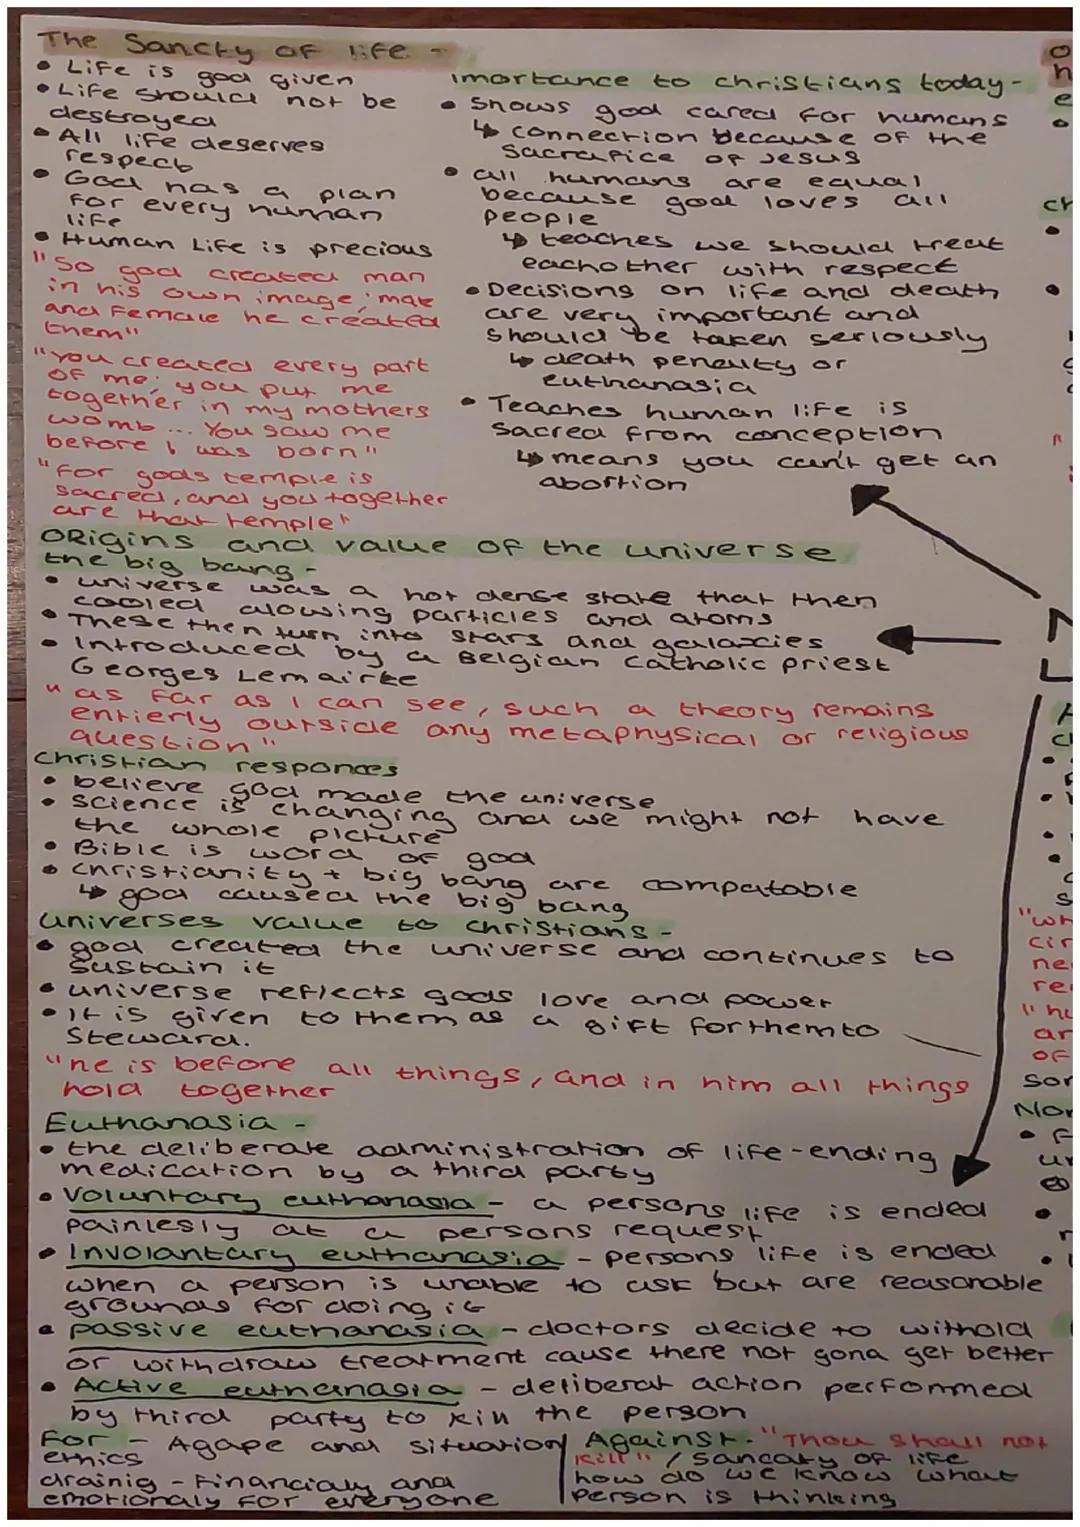 The Sancty of life -
• Life is god given
• Life should not be
destroyed
• All life deserves
respect
• God has a plan
for every human
life
• Human Life is precious
"So god created man
in his own image; male
and Female he created
them"
"you created every part
of me; you put me
together in my mothers
womb ... You saw me
before i was born"
"For gods temple is
sacred, and you together
are that temple"
imortance to christians today-
• Shows god cared for humans
↳ connection because of the
sacrafice of Jesus
• all humans are equal
because god loves all
people
↳ teaches we should treat
eachother with respect
• Decisions on life and death
are very important and
should be taken seriously
↳ death penalty or
euthanasia
• Teaches human life is
sacred from conception
↳ means you can't get an
abortion
ORigins and value of the universe
the big bang -
• universe was a hot dense state that then
cooled alowing particles and atoms
• These then turn into stars and galaxies
• Introduced by a Belgian catholic priest
Georges Lemairte
"as far as I can see, such a theory remains
entierly outside any metaphysical or religious
question"
christian responces
• believe god made the universe
• science is changing and we might not have
the whole picture
• Bible is word of god
• christianity + big bang are compatable
↳ god caused the big bang
universes value to christians -
• god created the universe and continues to
sustain it
• universe reflects gods love and power
• It is given to them as a gift for them to
steward.
"he is before all things, and in him all things
hold together
Euthanasia -
• the deliberate administration of life-ending
medication by a third party
• Voluntary euthanasia - a persons life is ended
painlesly at a persons request
• Involantary euthanasia - persons life is ended
when a person is unable to ask but are reasonable
grounds for doing it
• passive euthanasia - doctors decide to withold
or withdraw treatment cause there not gona get better
• Active euthanasia - deliberat action perfommed
by third party to kill the person
For - Agape and situation
ethics
drainig - Financialy and
emotionaly for everyone
Against - "Thou shall not
kill" / sancaty of life
how do we know what
person is thinking